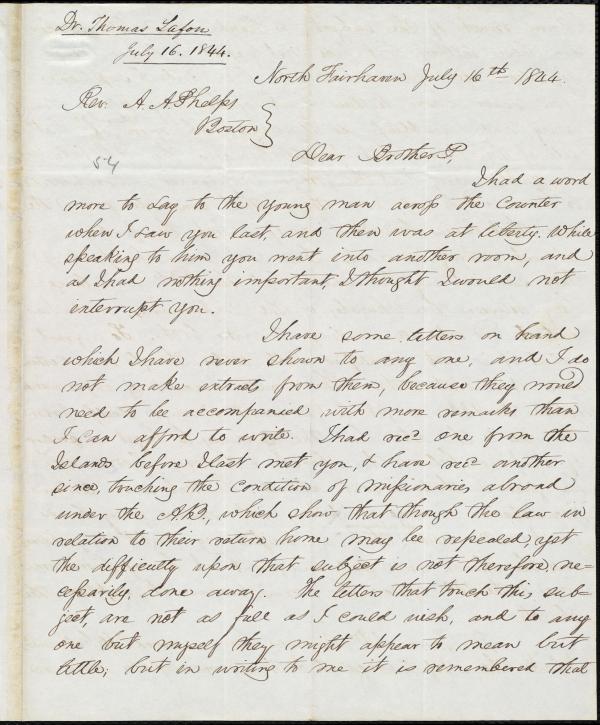 Dr. Thomas Lafon
July 16. 1844.
North Fairhaven July 16th 1844.
Rev. A. A Phelps
Boston
54
Dear Brother P,
I had a word
more to say to the young man across the counter
when I saw you last, and then was at liberty. While
speaking to him you went into another room, and
as I had nothing important, I thought I would not
interrupt you.
I have some letters on hand
which I have never shown to any one, and I do
not make extracts from them, because they would
need to be accompanied with more remarks than
I can afford to write. I had recd one from the
Islands before I last met you, & have recd another
since, touching the condition of missionaries abroad
under the A.B., which show that though the law in
relation to their return home may be repealed, yet
the difficulty upon that subject is not therefore, ne=
cessarily, done away. The letters that touch this sub-
ject, are not as full as I could wish, and to any
one but myself they might appear to mean but
little; but in writing to me it is remembered that